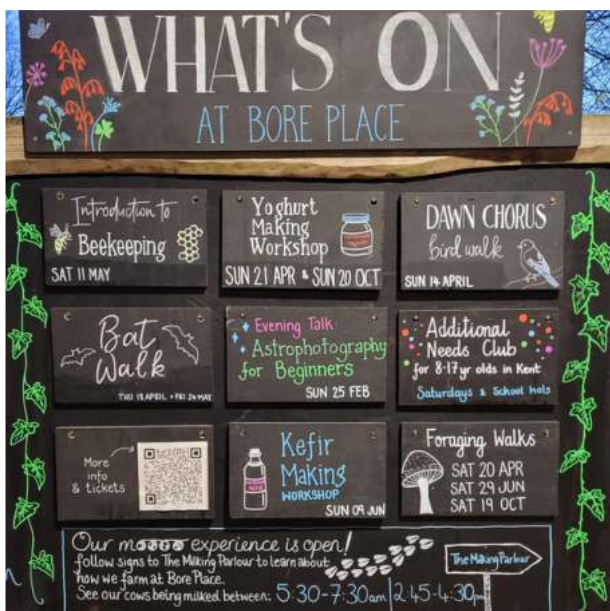 WHAT'S ON
AT BORE PLACE
Introduction to
Beekeeping
SAT 11 MAY
Yoghurt
Making
Workshop
SUN 21 APR & SUN 20 OCT
DAWN CHORUS
bird walk
SUN 14 APRIL
Bat
Walk
THU 18 APRIL + FRI 24 MAY
Evening Talk
Astrophotography
for Beginners
SUN 25 FEB
Additional
Needs Club
for 8-17yr olds in Kent
Saturdays & School hols
More
info
& tickets
Kefir
Making
WORKSHOP
SUN 09 JUN
Foraging Walks
SAT 20 APR
SAT 29 JUN
SAT 19 OCT
Our moooo experience is open!
follow signs to The Milking Parlour to learn about
how we farm at Bore Place.
See our cows being milked between: 5:30-7:30am | 2:45-4:30pm
The Milking Parlour